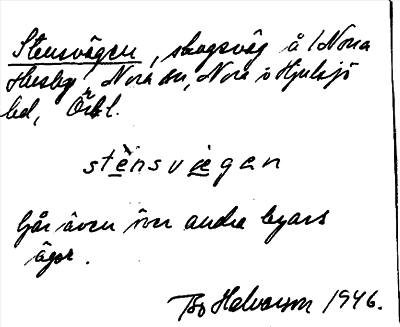 Stensvägen, skogsväg å Norra
Huseby, Nora sn, Nora o Hjulsjö
bd, Örbl.
stènsvægan
Går även över andra byars
ägor.
Bo Halvarson 1946.